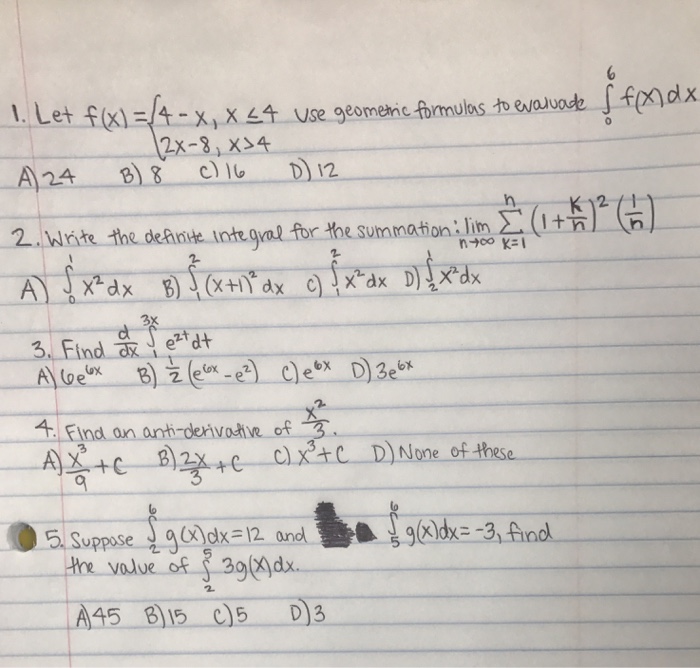 1. Let f(x) = { 4 - x, x ≤ 4 Use geometric formulas to evaluate ∫₀⁶ f(x)dx
2x-8, x>4
A) 24 B) 8 C) 16 D) 12
2. Write the definite integral for the summation: lim n→∞ Σ k=1 n (1+k/n)² (1/n)
A) ∫₀¹ x² dx B) ∫₁² (x+1)² dx C) ∫₁² x² dx D) ∫₂¹ x² dx
3. Find d/dx ∫₁³ˣ e²ᵗ dt
A) 6e⁶ˣ B) 1/2 (e⁶ˣ - e²) C) e⁶ˣ D) 3e⁶ˣ
4. Find an anti-derivative of x²/3.
A) x³/9 + C B) 2x/3 + C C) x³ + C D) None of these
5. Suppose ∫₂⁶ g(x)dx = 12 and ∫₅⁶ g(x)dx = -3, find
the value of ∫₂⁵ 3g(x)dx.
A) 45 B) 15 C) 5 D) 3